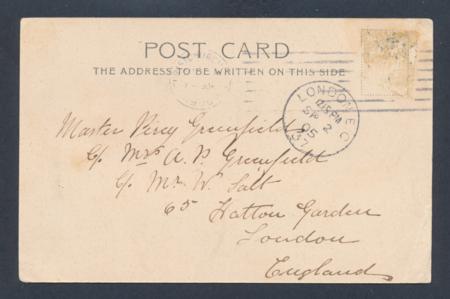 POST CARD
THE ADDRESS TO BE WRITTEN ON THIS SIDE
LONDON E.C
12.15 PM
SP 2
05
37
Master Percy Greenfield
C/o Mrs A. P. Greenfield
C/o Mr W. Salt
65 Hatton Garden
London
England